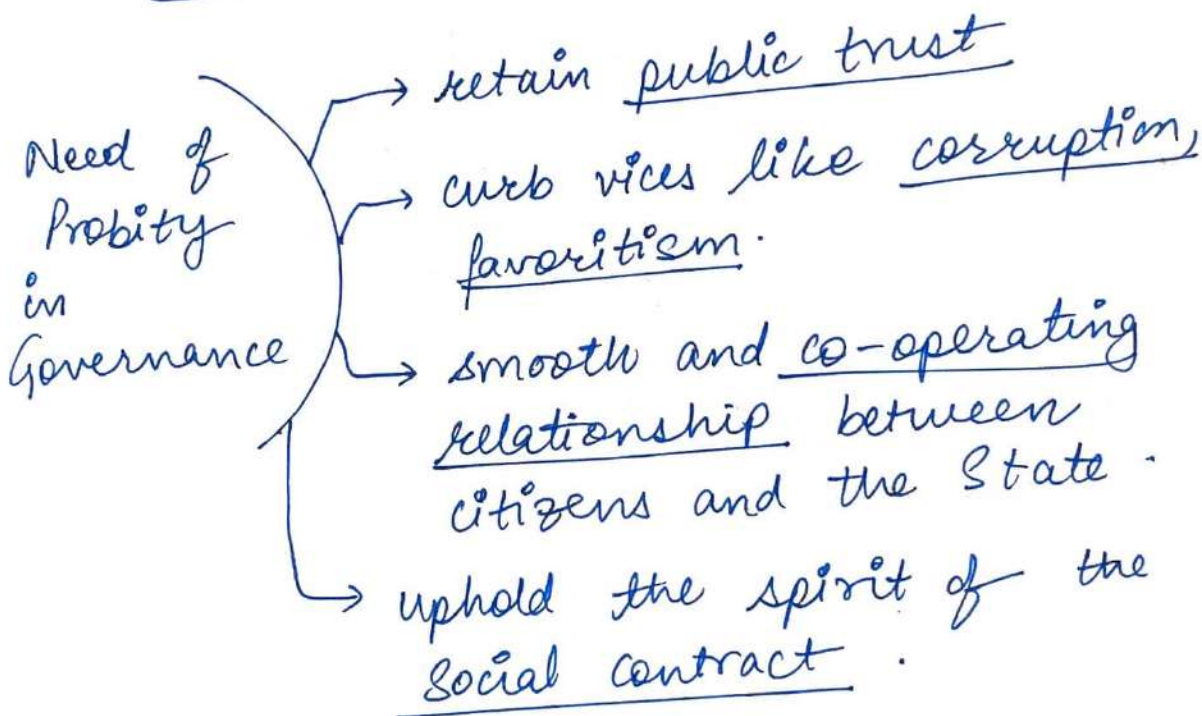 Need of
Probity
in
Governance
retain public trust
curb vices like corruption,
favoritism.
smooth and co-operating
relationship between
citizens and the State.
uphold the spirit of the
social contract.